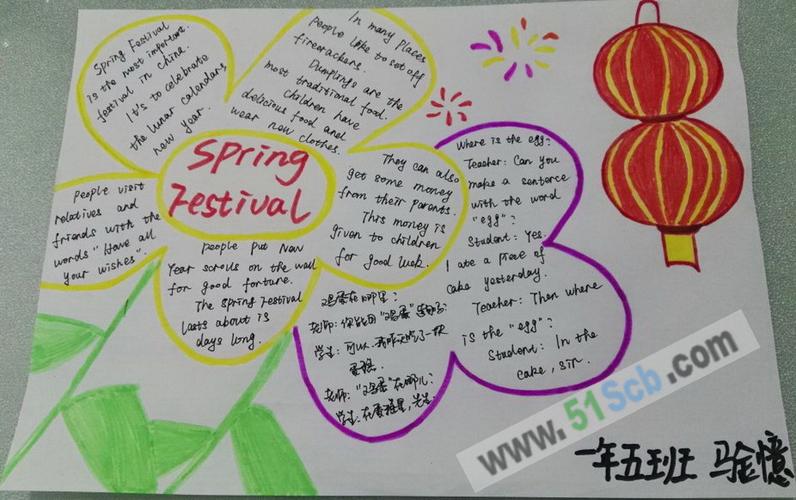 Spring Festival
Spring Festival
is the most important
festival in China.
It's to celebrate
the lunar calendars
new year.
In many places
people like to set off
firecrackers.
Dumplings are the
most traditional food.
Children have
delicious food and
wear new clothes.
They can also
get some money
from their parents.
This money is
given to children
for good luck.
People visit
relatives and
friends with the
words "Have all
your wishes".
people put New
Year scrolls on the wall
for good fortune.
The Spring Festival
lasts about 15
days long.
Where is the egg?
Teacher: Can you
make a sentence
with the word
"egg"?
Student: Yes.
I ate a piece of
cake yesterday.
Teacher: Then where
is the "egg"?
Student: In the
cake, sir.
鸡蛋在哪里?
老师:你能用"鸡蛋"造句吗?
学生:可以,我昨天吃了一块
蛋糕.
老师:"鸡蛋"在哪儿?
学生:在蛋糕里,先生.
一年五班 马金憶
www.51Scb.com